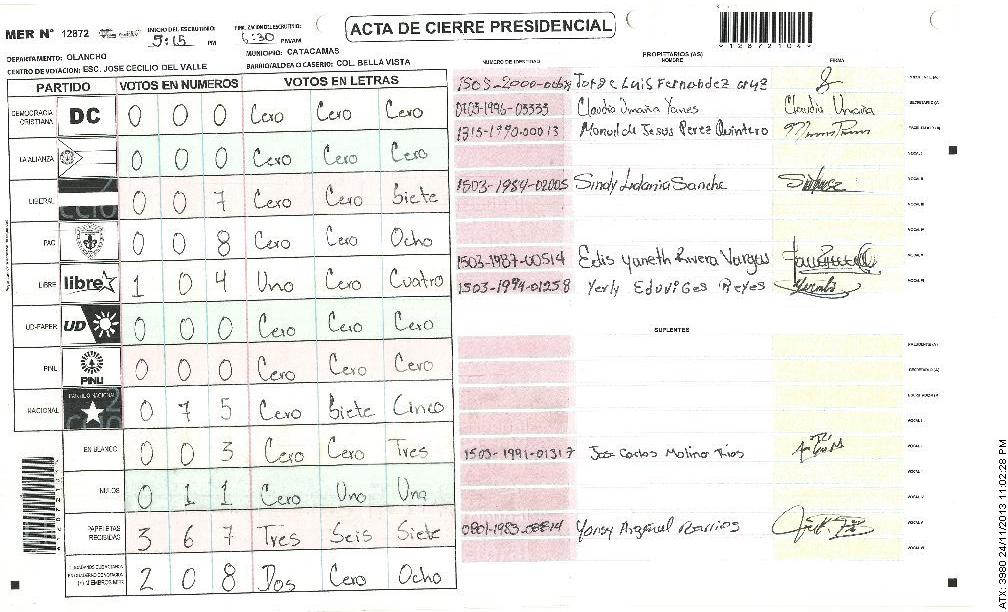 ACTA DE CIERRE PRESIDENCIAL
MER N° 12872
INICIO DEL ESCRUTINIO: 5:15 PM
FINALIZACION DEL ESCRUTINIO: 6:30 PM/AM
DEPARTAMENTO: OLANCHO
MUNICIPIO: CATACAMAS
CENTRO DE VOTACION: ESC. JOSE CECILIO DEL VALLE
BARRIO/ALDEA O CASERIO: COL. BELLA VISTA
PARTIDO VOTOS EN NUMEROS VOTOS EN LETRAS
DEMOCRACIA CRISTIANA DC 0 0 0 Cero Cero Cero
LA ALIANZA 0 0 0 Cero Cero Cero
LIBERAL 0 0 7 Cero Cero Siete
PAC 0 0 8 Cero Cero Ocho
LIBRE libre 1 0 4 Uno Cero Cuatro
UD-FAPER UD 0 0 0 Cero Cero Cero
PINU PINU 0 0 0 Cero Cero Cero
NACIONAL PARTIDO NACIONAL 0 7 5 Cero Siete Cinco
EN BLANCO 0 0 3 Cero Cero Tres
NULOS 0 1 1 Cero Uno Uno
PAPELETAS RECIBIDAS 3 6 7 Tres Seis Siete
2 0 8 Dos Cero Ocho
PROPIETARIOS (AS)
NUMERO DE IDENTIDAD NOMBRE FIRMA
Jorge Luis Fernandez cruz
Claudia Umaña Yanes Claudia Umaña
1515-1990-00013 Manuel de Jesus Perez Quintero
1503-1984-02005 Sindy Lidania Sanche
1503-1987-00514 Edis Yaneth Rivera Vargas
1503-1994-01258 Yerly Eduviges Reyes
SUPLENTES
1503-1991-01317 Jose Carlos Molina Rios
Barrios
ATX: 3980 24/11/2013 11:02:28 PM